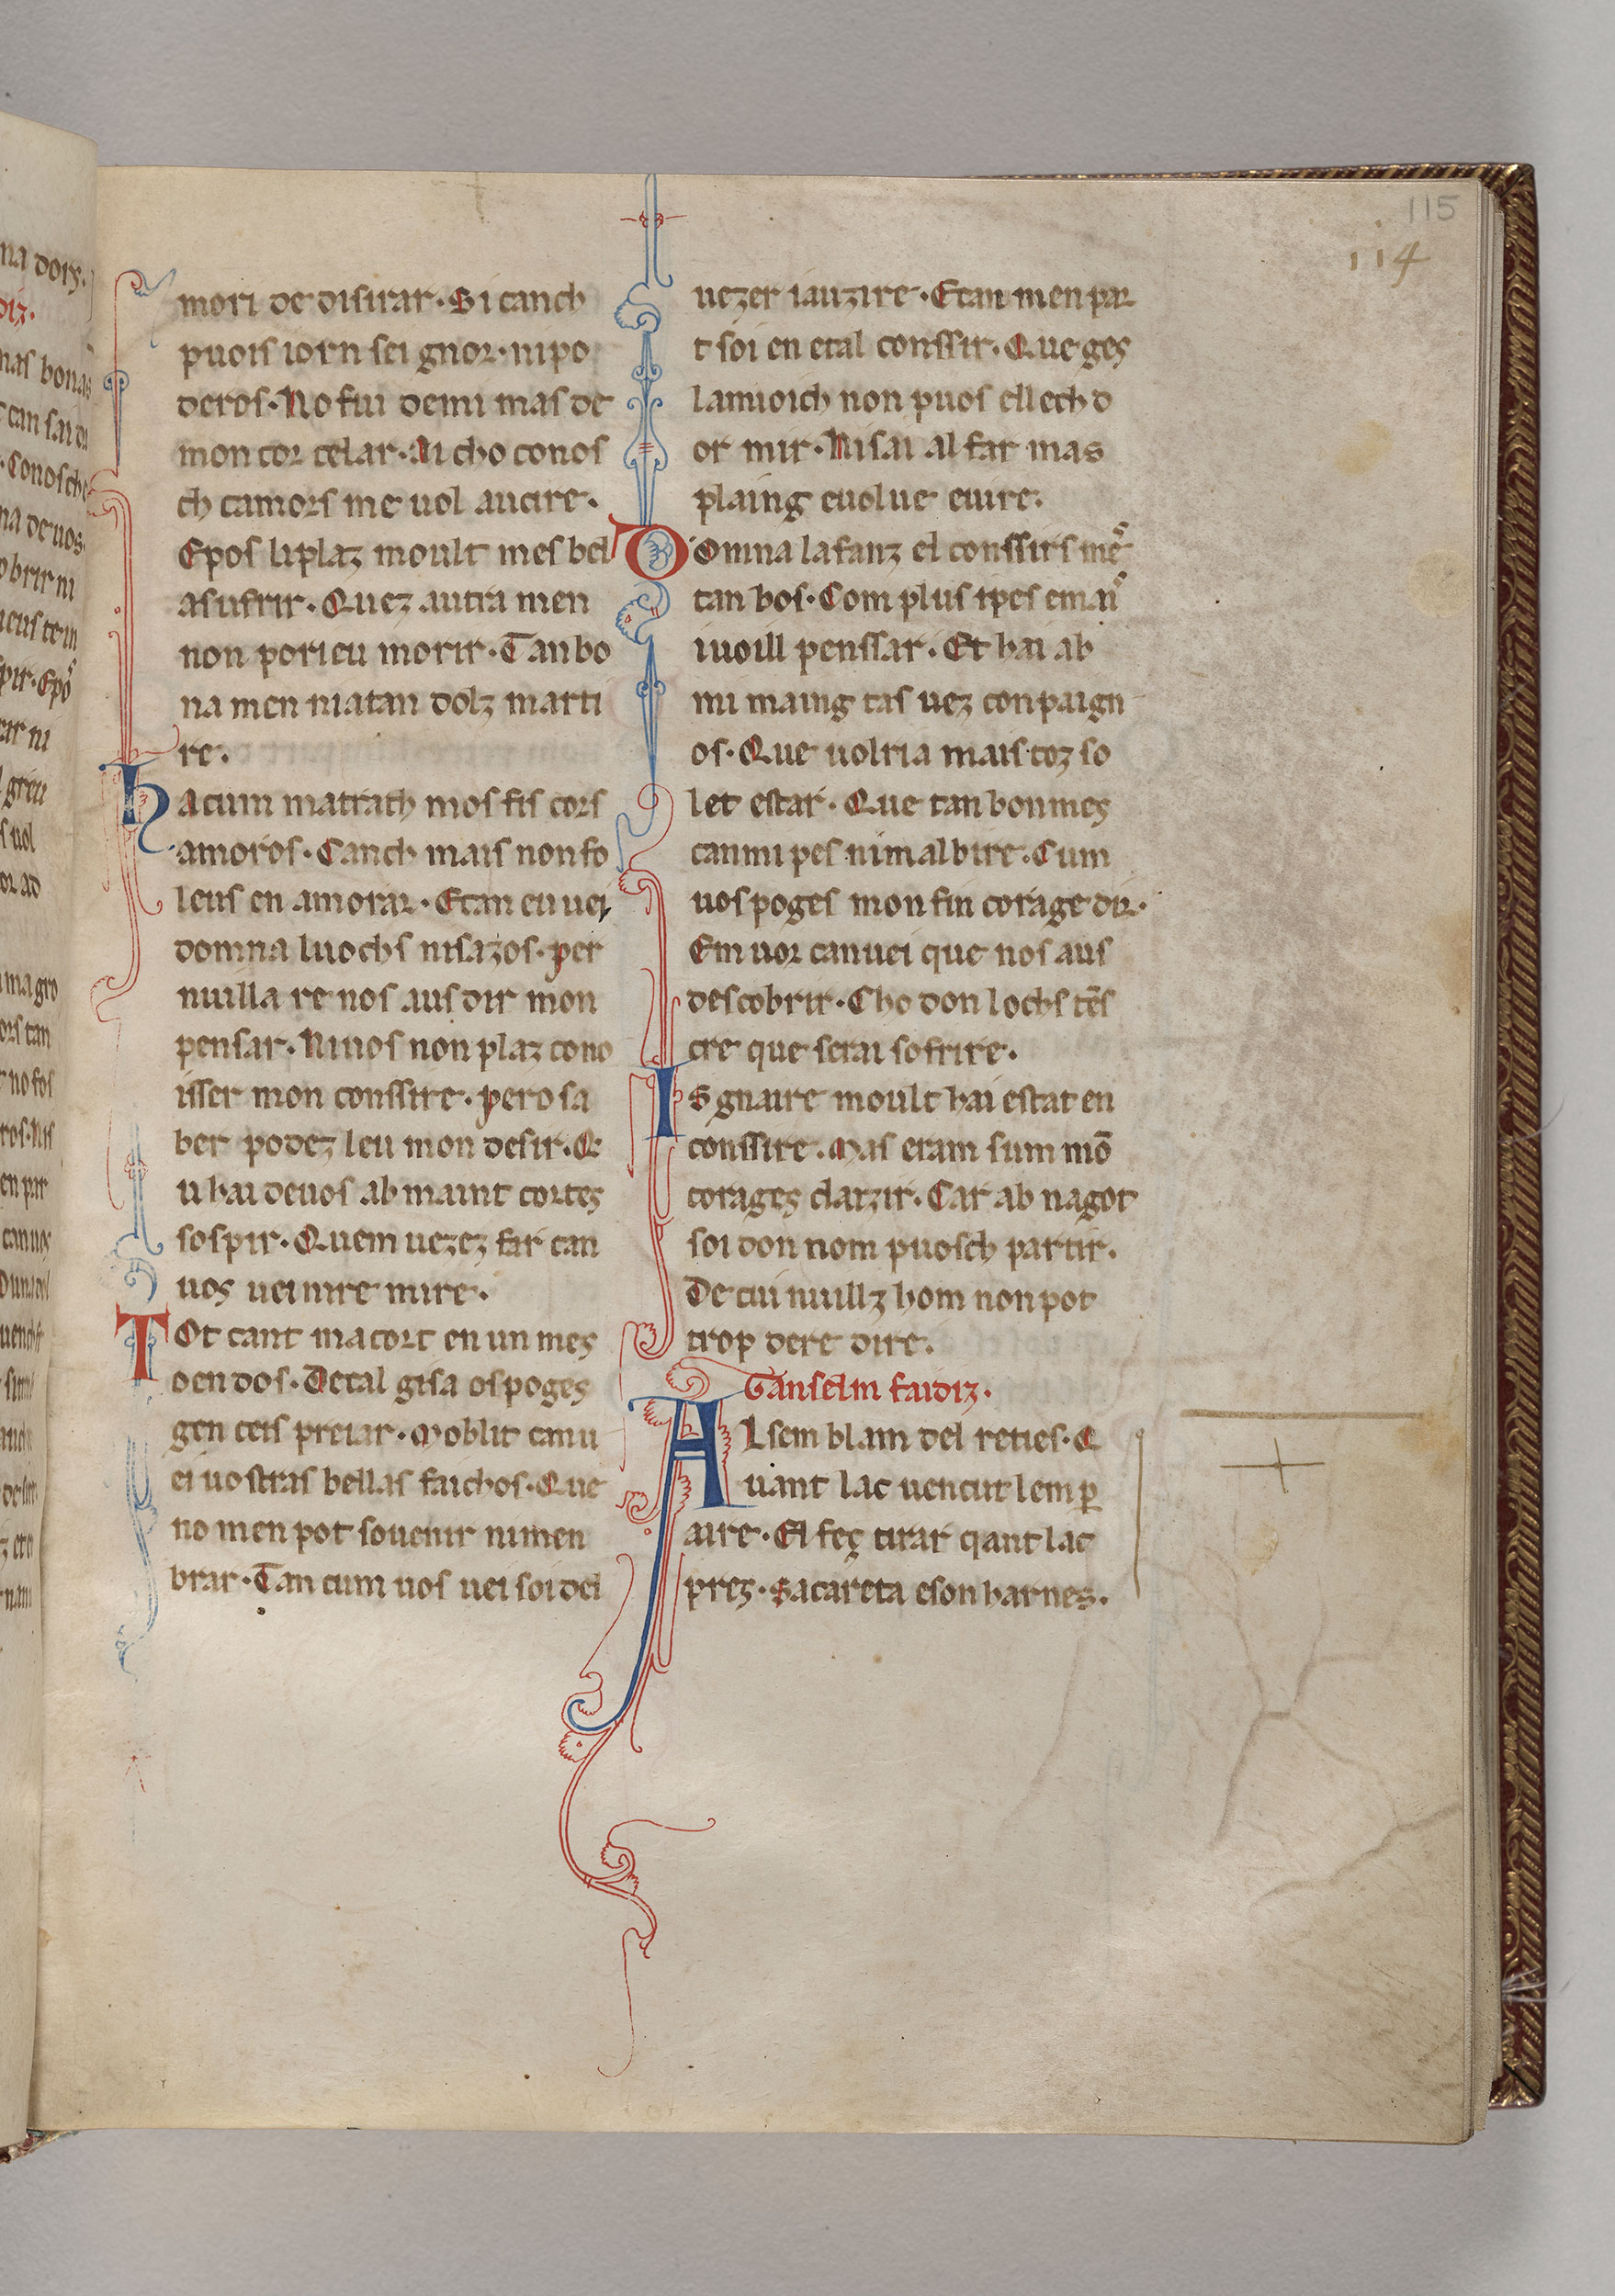 115
114
mori de disirar. Si canch
puois iorn sei gnor. ni po
deros. No fui demi mas de
mon cor celar. Ai cho conos
ch camors me uol aucire.
Epos li plaz moult mes bel
asufrir. Quez autra men
non pori eu morir. Tan bo
na men matan dolz marti
re.
Ha cum matrath mos fis cors
amoros. Canch mais non fo
leus en amorar. E can eu uei
domna luochs ni sazos. per
nuilla re nos aus dir mon
pensar. Ni uos non plaz cono
isser mon conssire. pero sa
ber podez leu mon desir. Q
u hai deuos ab maint cortes
sospir. Quem uezez far can
uos uei uire mire.
Tot cant ma cort en un mes
o en dos. De tal gisa os poges
gen ceis preiar. Moblit can u
ei uostras bellas faichos. Que
no men pot souenir nimen
brar. Tan cum uos uei soi del
uezer iauzire. E can men par
t soi en etal conssir. Que ges
la nuoich non puos el lech d
or mir. Ni sai al far mas
plaing e uolue e uire.
Domna lafanz el conssirs mes
tan bos. Com plus ipes e mais
iuoill penssar. Et hai ab
mi maing tas uez conpaign
os. Que uolria mais toz so
let estar. Que tan bon mes
can mi pes nim albire. Cum
uos poges mon fin corage dir.
E m uor can uei que nos aus
descobrir. Cho don lochs tēs
cre que serai sofrire.
I S gnaure moult hai estat en
conssire. Mas eram sum mō
corages clarzir. Car ab nagot
soi don nom puosch partir.
De cui nuillz hom non pot
trop dere dire.
Ganselm faidiz.
Al sem blam del reties. Q
uant lac uencut lemp
aire. El fez tirar qant lac
pres. Sa careta e son harnes.